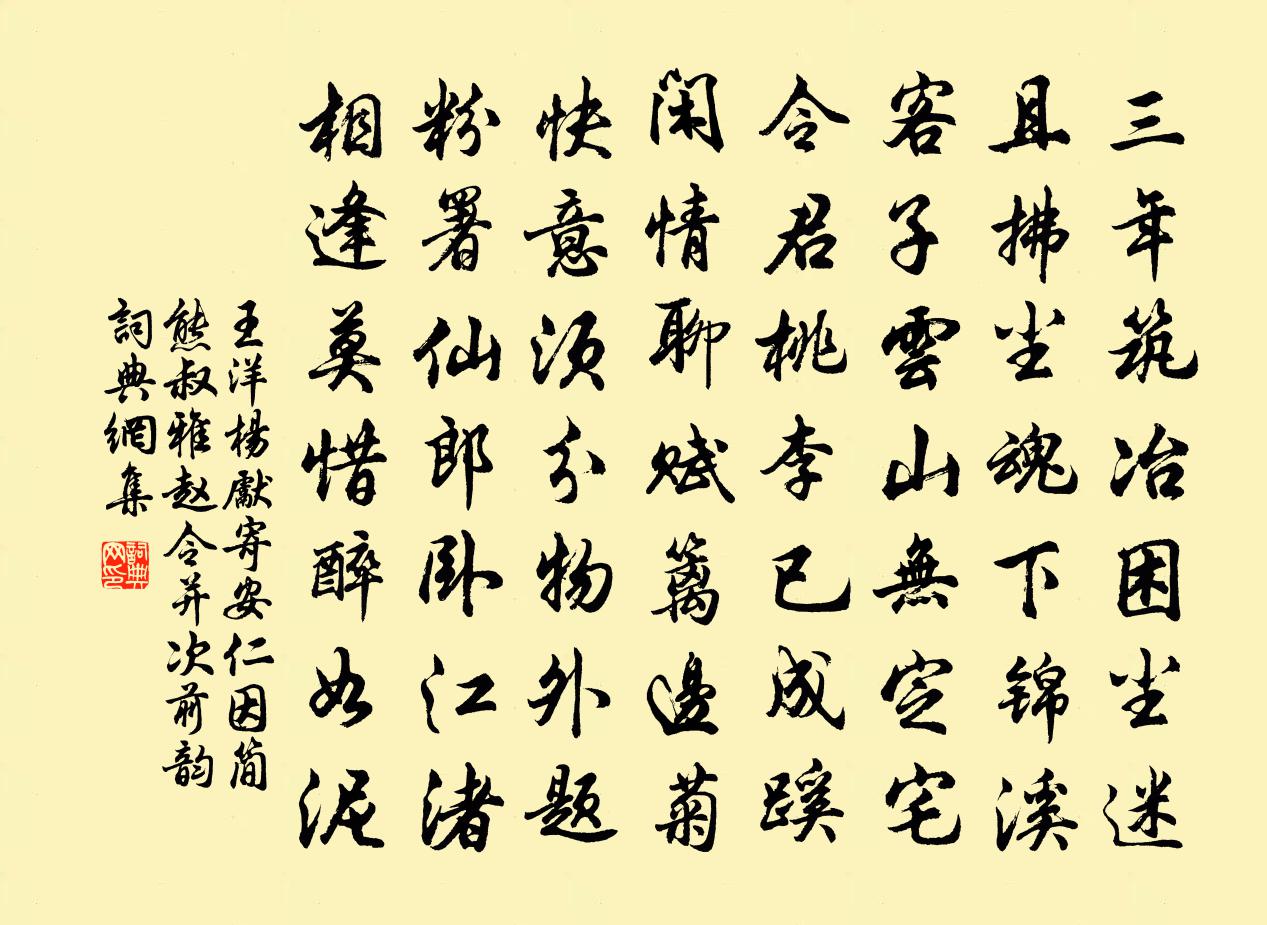 三年筑冶困尘迷
且拂尘魂下锦溪
客子雲山無定宅
令君桃李已成蹊
闲情聊赋篱邊菊
快意须分物外题
粉署仙郎卧江渚
相逢莫惜醉如泥
王洋楊獻寄安仁因简
熊叔雅赵令并次前韵
詞典網集
詞典网印